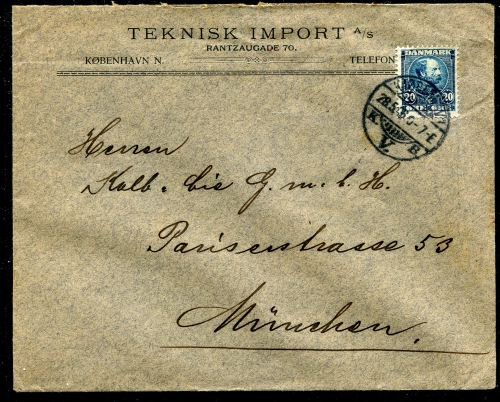 TEKNISK IMPORT A/S
RANTZAUGADE 70.
KØBENHAVN N. TELEFON
DANMARK
20 20
K. B.
V.
Herren
Kalb & Cie G. m. b. H.
Pariserstrasse 53
München.